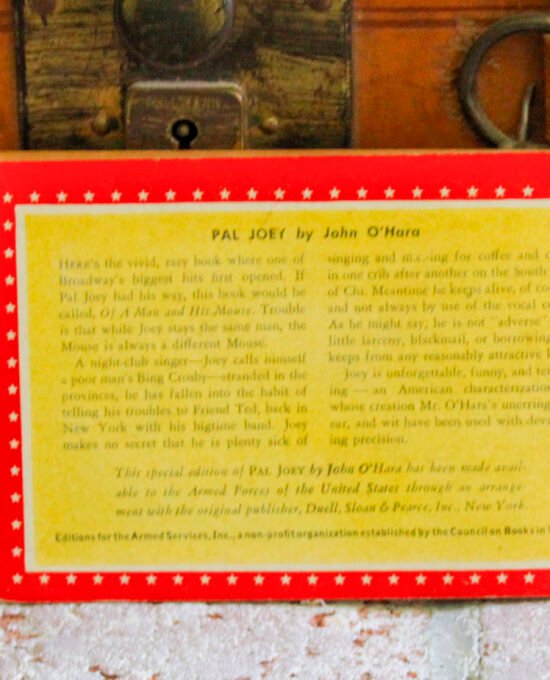 PAL JOEY by John O'Hara
HERE's the vivid, racy book where one of
Broadway's biggest hits first opened. If
Pal Joey had his way, this book would be
called, Of A Man and His Mouse. Trouble
is that while Joey stays the same man, the
Mouse is always a different Mouse.
A night-club singer—Joey calls himself
a poor man's Bing Crosby—stranded in the
provinces, he has fallen into the habit of
telling his troubles to Friend Ted, back in
New York with his bigtime band. Joey
makes no secret that he is plenty sick of
singing and m.c.-ing for coffee and
in one crib after another on the South
of Chi. Meantime he keeps alive, of
and not always by use of the vocal
As he might say, he is not "adverse"
little larceny, blackmail, or borrowing
keeps from any reasonably attractive
Joey is unforgettable, funny, and
ing — an American characterization
whose creation Mr. O'Hara's unerring
ear, and wit have been used with
ing precision.
This special edition of PAL JOEY by John O'Hara has been made avail-
able to the Armed Forces of the United States through an arrange-
ment with the original publisher, Duell, Sloan & Pearce, Inc., New York.
Editions for the Armed Services, Inc., a non-profit organization established by the Council on Books in